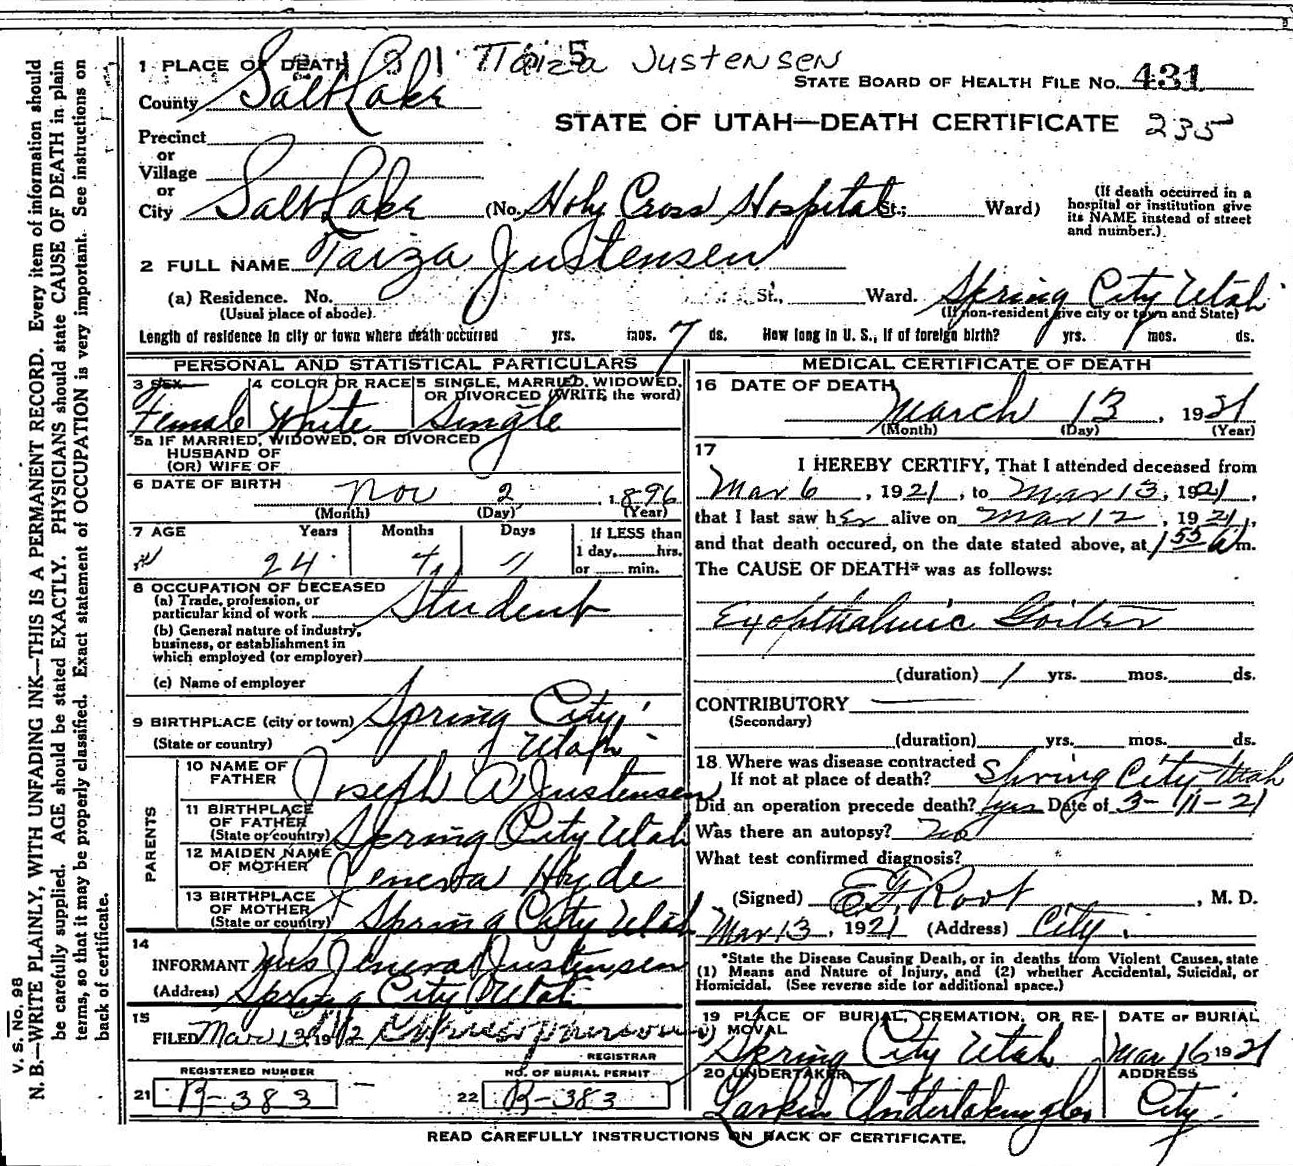 1 PLACE OF DEATH Taiza Justensen
STATE BOARD OF HEALTH FILE NO. 431
County Salt Lake
STATE OF UTAH—DEATH CERTIFICATE 235
Precinct
or
Village
or
City Salt Lake (No. Holy Cross Hospital St.; Ward) (If death occurred in a hospital or institution give its NAME instead of street and number.)
2 FULL NAME Taiza Justensen
(a) Residence. No. St., Ward. Spring City Utah
(Usual place of abode). (If non-resident give city or town and State)
Length of residence in city or town where death occurred yrs. mos. 7 ds. How long in U. S., if of foreign birth? yrs. mos. ds.
PERSONAL AND STATISTICAL PARTICULARS
3 SEX 4 COLOR OR RACE 5 SINGLE, MARRIED, WIDOWED, OR DIVORCED (WRITE the word)
Female White Single
5a IF MARRIED, WIDOWED, OR DIVORCED
HUSBAND OF
(OR) WIFE OF
6 DATE OF BIRTH Nov 2, 1896
(Month) (Day) (Year)
7 AGE Years Months Days If LESS than
24 4 11 1 day, hrs.
or min.
8 OCCUPATION OF DECEASED
(a) Trade, profession, or
particular kind of work Student
(b) General nature of industry,
business, or establishment in
which employed (or employer)
(c) Name of employer
9 BIRTHPLACE (city or town) Spring City
(State or country) Utah
PARENTS
10 NAME OF FATHER Joseph A Justensen
11 BIRTHPLACE OF FATHER (State or country) Spring City Utah
12 MAIDEN NAME OF MOTHER Geneva Hyde
13 BIRTHPLACE OF MOTHER (State or country) Spring City Utah
14
INFORMANT Mrs Geneva Justensen
(Address) Spring City Utah
15
FILED Mar 13 191
REGISTRAR
REGISTERED NUMBER
21 R-383
NO. OF BURIAL PERMIT
22 R-383
MEDICAL CERTIFICATE OF DEATH
16 DATE OF DEATH
March 13, 1921
(Month) (Day) (Year)
17
I HEREBY CERTIFY, That I attended deceased from
Mar 6, 1921, to Mar 13, 1921,
that I last saw her alive on Mar 12, 1921,
and that death occured, on the date stated above, at 1 55 A m.
The CAUSE OF DEATH* was as follows:
Exophthalmic Goiter
(duration) 1 yrs. mos. ds.
CONTRIBUTORY
(Secondary)
(duration) yrs. mos. ds.
18 Where was disease contracted
If not at place of death? Spring City, Utah
Did an operation precede death? yes Date of 3-11-21
Was there an autopsy? No
What test confirmed diagnosis?
(Signed) E. F. Root, M. D.
Mar 13, 1921 (Address) City.
*State the Disease Causing Death, or in deaths from Violent Causes, state
(1) Means and Nature of Injury, and (2) whether Accidental, Suicidal, or
Homicidal. (See reverse side for additional space.)
19 PLACE OF BURIAL, CREMATION, OR RE- DATE OF BURIAL
MOVAL
Spring City Utah Mar 16 1921
20 UNDERTAKER ADDRESS
Larkin Undertaking City
READ CAREFULLY INSTRUCTIONS ON BACK OF CERTIFICATE.
V. S. No. 98
N. B.—WRITE PLAINLY, WITH UNFADING INK—THIS IS A PERMANENT RECORD. Every item of information should
be carefully supplied. AGE should be stated EXACTLY. PHYSICIANS should state CAUSE OF DEATH in plain
terms, so that it may be properly classified. Exact statement of OCCUPATION is very important. See instructions on
back of certificate.